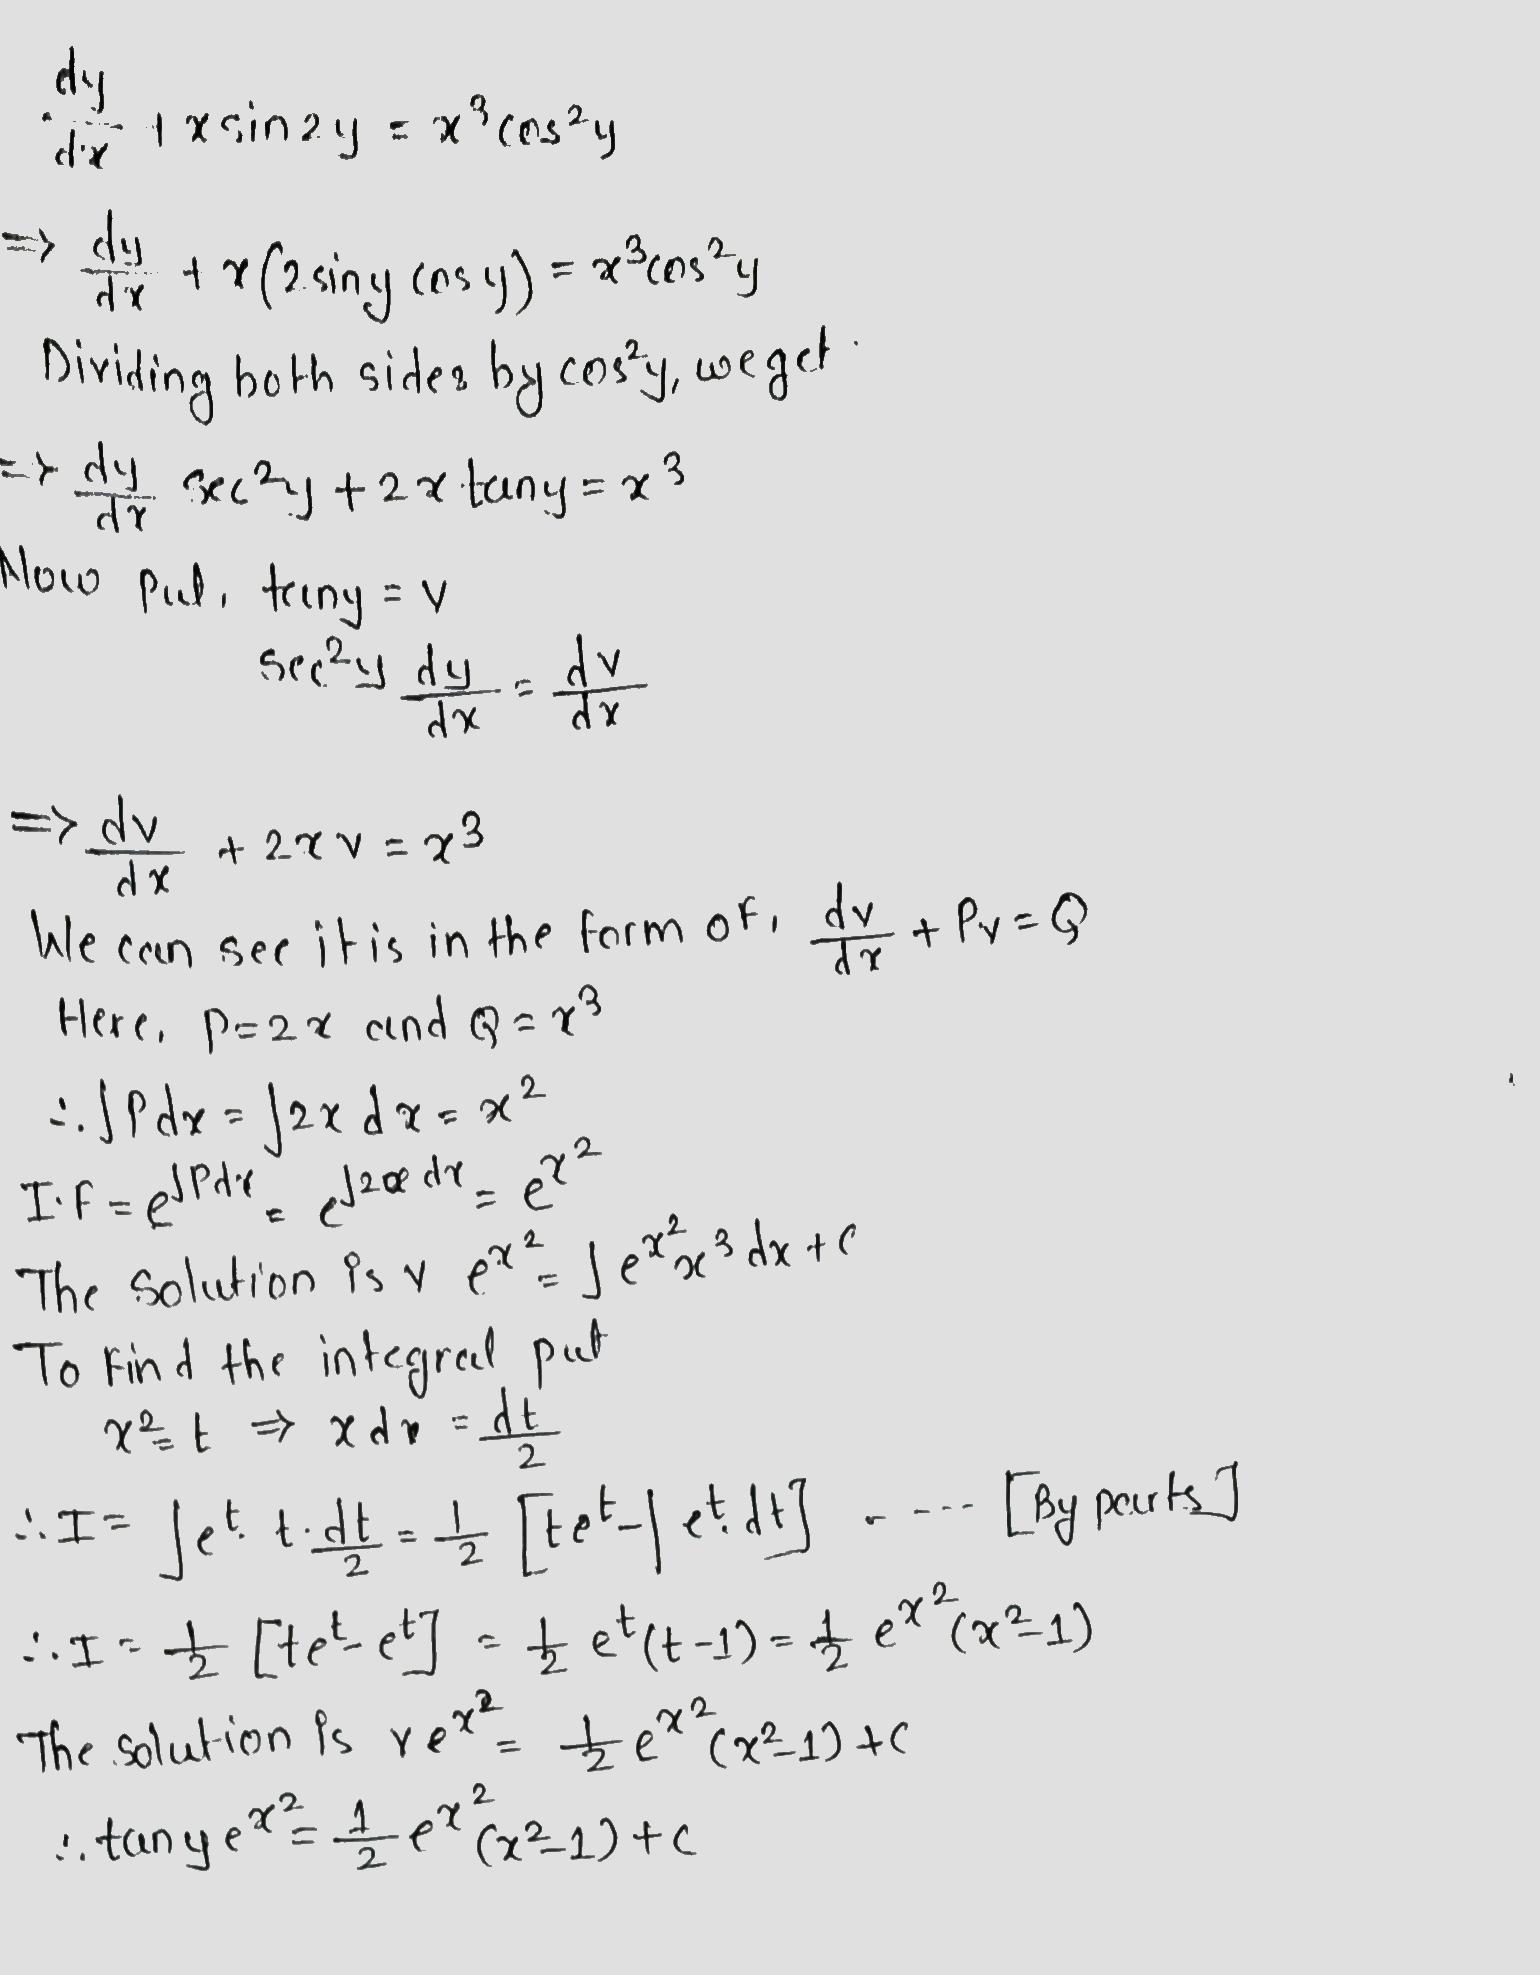 dy/dx + x sin2y = x³cos²y
=> dy/dx + x(2.siny cosy) = x³cos²y
Dividing both sides by cos²y, we get
=> dy/dx sec²y + 2x tany = x³
Now put, tany = v
sec²y dy/dx = dv/dx
=> dv/dx + 2xv = x³
We can see it is in the form of, dv/dx + Pv = Q
Here, P=2x and Q = x³
∴ ∫Pdx = ∫2x dx = x²
I.F = e^∫Pdx = e^∫2x dx = e^x²
The Solution is v e^x² = ∫e^x² x³ dx + c
To Find the integral put
x² = t ⇒ x dx = dt/2
∴ I = ∫e^t. t. dt/2 = 1/2 [te^t - ∫e^t. dt] ---- [By parts]
∴ I = 1/2 [te^t - e^t] = 1/2 e^t (t-1) = 1/2 e^x² (x²-1)
The solution is ve^x² = 1/2 e^x² (x²-1) + c
∴ tany e^x² = 1/2 e^x² (x²-1) + c